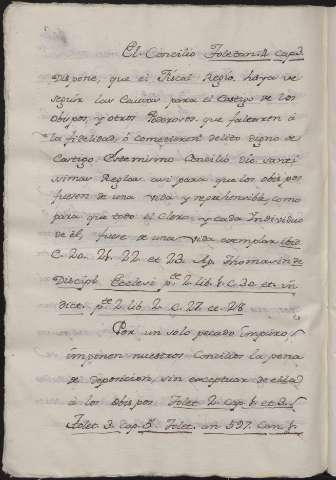 El Concilio Toledan. 4. cap. 3.
dispone, que el Fiscal Regio, haya de
seguir las Causas para el Castigo de los
Obispos, y otros Poderosos que faltaren á
la fidelidad, ó cometieren delito digno de
Castigo. Este mismo Concilio dio santi
simas Reglas asi para que los obispos
fuesen de una vida yrreprehensible, como
para que todo el Clero, y cada Individuo
de él, fuese de una vida exemplar ibid.
C. 20. 21. 22 et 23. Ap. Thomasin. de
Discipl. Eccles. p.te 2. lib. 1. C. 30. et. in
dice. p.te 2. lib. 2. C. 27. et 28.
Por un solo pecado impuro,
imponen nuestros Concilios la pena
de deposicion, sin exceptuar de ella
á los Obispos Tolet. 2. cap. 1. et 3.
Tolet. 3. cap. 5. Tolet. an 597. Can. 1.